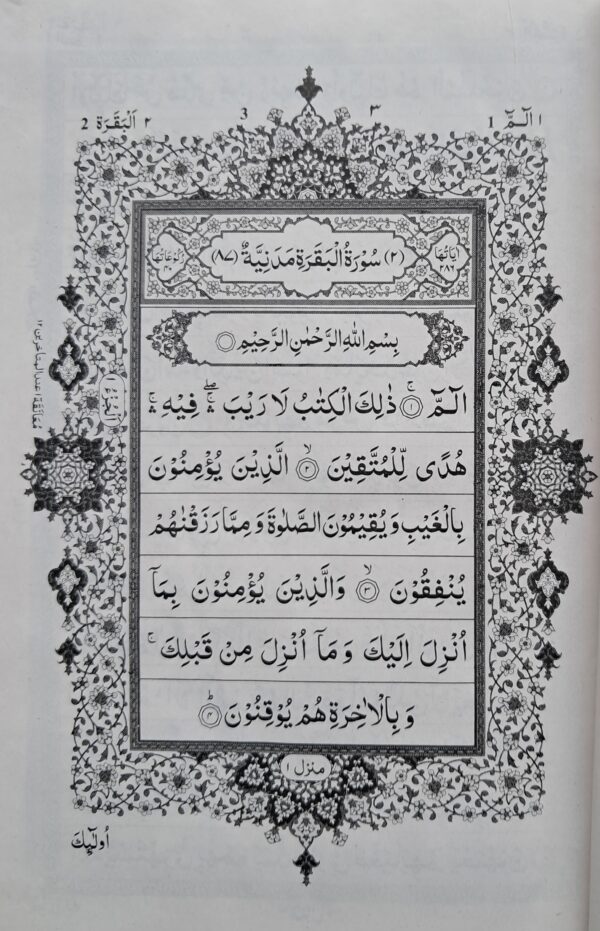 ١ الٓمّٓ 1
٣ 3
٢ اَلْبَقَرَة 2
اٰيَاتُهَا ٢٨٦
(٢) سُوْرَةُ الْبَقَرَةِ مَدَنِيَّةٌ (٨٧)
رُكُوْعَاتُهَا ٤٠
بِسْمِ اللّٰهِ الرَّحْمٰنِ الرَّحِيْمِ
الٓمّٓ ۚ﴿١﴾ ذٰلِكَ الْكِتٰبُ لَا رَيْبَ ۛۖ فِيْهِ ۛ
هُدًى لِّلْمُتَّقِيْنَ ۙ﴿٢﴾ الَّذِيْنَ يُؤْمِنُوْنَ
بِالْغَيْبِ وَيُقِيْمُوْنَ الصَّلٰوةَ وَمِمَّا رَزَقْنٰهُمْ
يُنْفِقُوْنَ ۙ﴿٣﴾ وَالَّذِيْنَ يُؤْمِنُوْنَ بِمَآ
اُنْزِلَ اِلَيْكَ وَمَآ اُنْزِلَ مِنْ قَبْلِكَ ۚ
وَبِالْاٰخِرَةِ هُمْ يُوْقِنُوْنَ ؕ﴿٤﴾
اَلْجُزْءُ ١
مُعَانَقَة ١ عند المتأخرين ١٢
منزل ١
اُولٰٓئِكَ